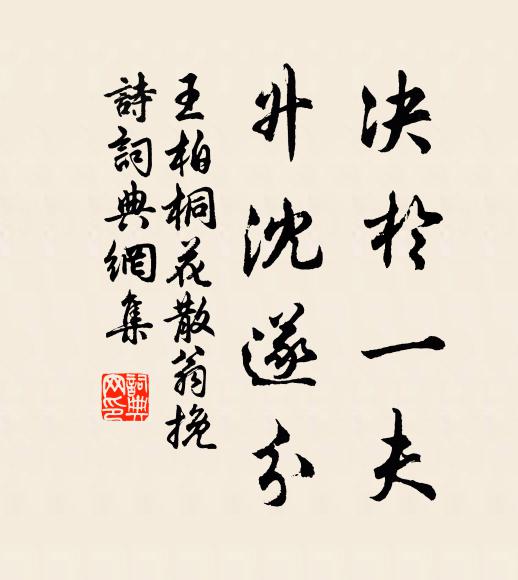 决於一夫
升沈遂分
王柏桐花散翁挽
詩詞典網集
詞典
网印